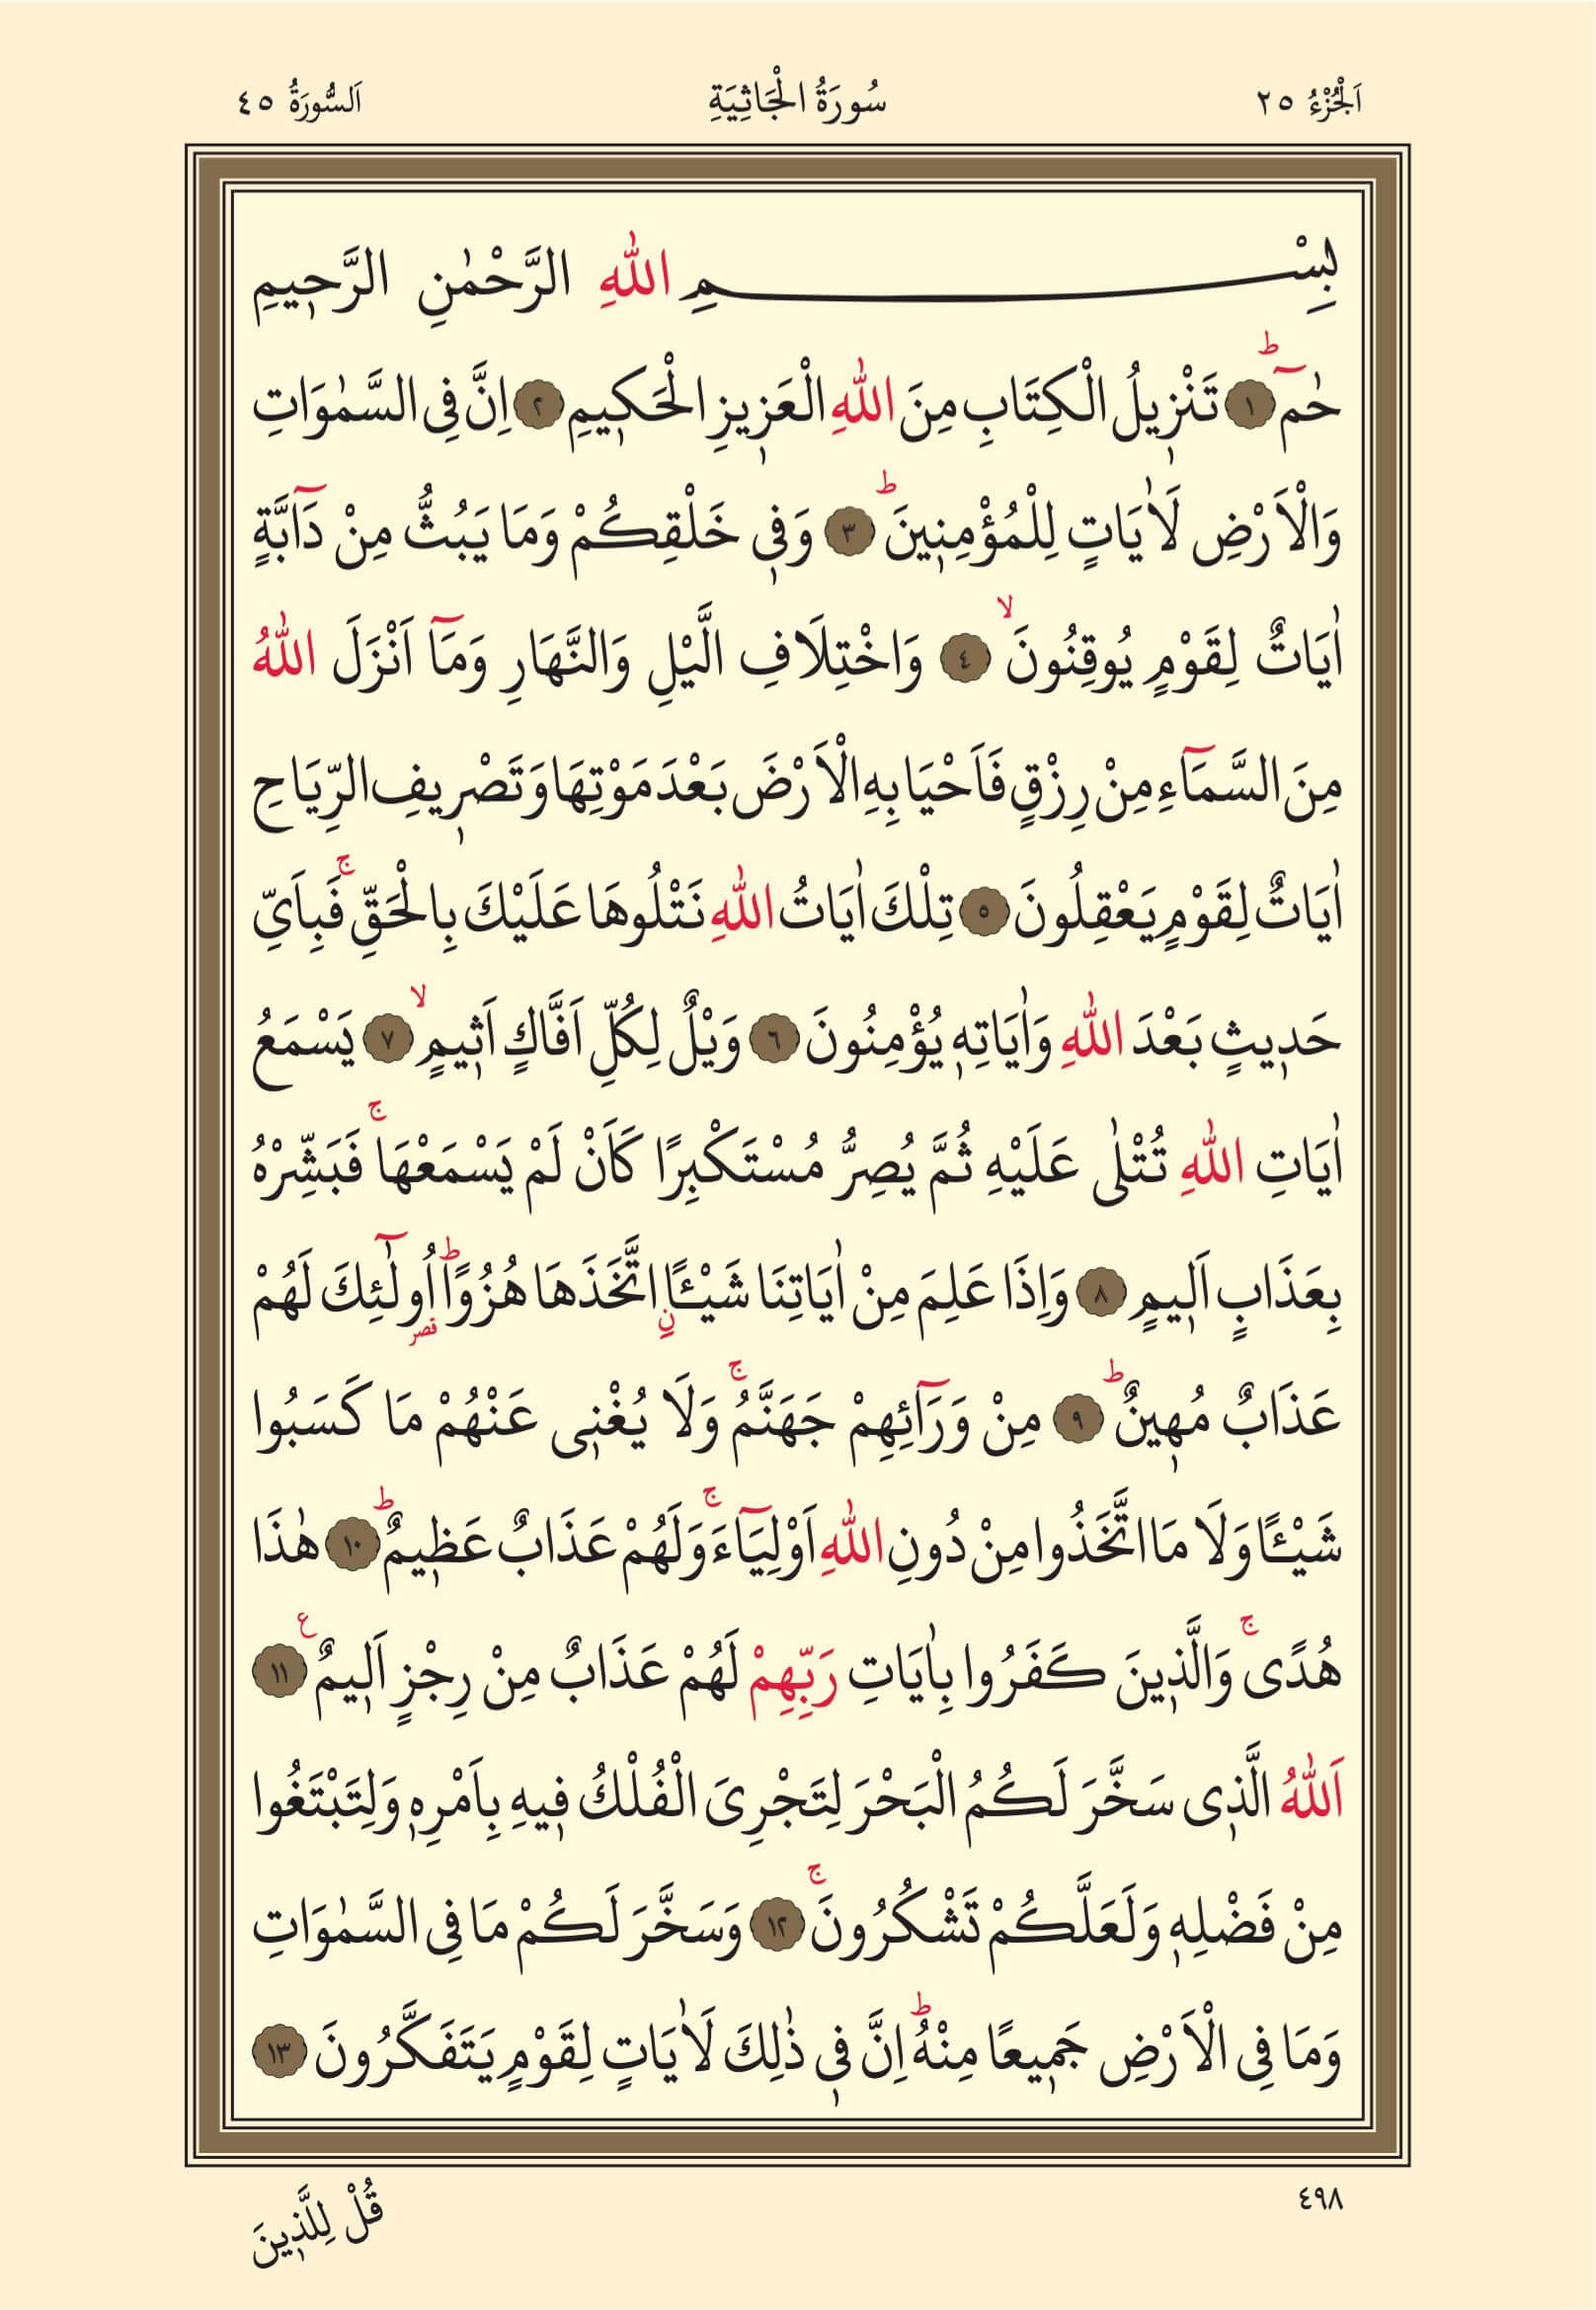 اَلْجُزْءُ ٢٥ سُورَةُ الْجَاثِيَةِ اَلسُّورَةُ ٤٥
بِسْمِ اللّٰهِ الرَّحْمٰنِ الرَّحٖيمِ
حٰمٓ ۜ ﴿١﴾ تَنْزٖيلُ الْكِتَابِ مِنَ اللّٰهِ الْعَزٖيزِ الْحَكٖيمِ ﴿٢﴾ اِنَّ فِى السَّمٰوَاتِ
وَالْاَرْضِ لَاٰيَاتٍ لِلْمُؤْمِنٖينَ ؕ ﴿٣﴾ وَفٖى خَلْقِكُمْ وَمَا يَبُثُّ مِنْ دَٓابَّةٍ
اٰيَاتٌ لِقَوْمٍ يُوقِنُونَ ۙ ﴿٤﴾ وَاخْتِلَافِ الَّيْلِ وَالنَّهَارِ وَمَٓا اَنْزَلَ اللّٰهُ
مِنَ السَّمَٓاءِ مِنْ رِزْقٍ فَاَحْيَا بِهِ الْاَرْضَ بَعْدَ مَوْتِهَا وَتَصْرٖيفِ الرِّيَاحِ
اٰيَاتٌ لِقَوْمٍ يَعْقِلُونَ ﴿٥﴾ تِلْكَ اٰيَاتُ اللّٰهِ نَتْلُوهَا عَلَيْكَ بِالْحَقِّ ۚ فَبِاَىِّ
حَدٖيثٍ بَعْدَ اللّٰهِ وَاٰيَاتِهٖ يُؤْمِنُونَ ﴿٦﴾ وَيْلٌ لِكُلِّ اَفَّاكٍ اَثٖيمٍ ۙ ﴿٧﴾ يَسْمَعُ
اٰيَاتِ اللّٰهِ تُتْلٰى عَلَيْهِ ثُمَّ يُصِرُّ مُسْتَكْبِرًا كَاَنْ لَمْ يَسْمَعْهَا ۚ فَبَشِّرْهُ
بِعَذَابٍ اَلٖيمٍ ﴿٨﴾ وَاِذَا عَلِمَ مِنْ اٰيَاتِنَا شَيْـًٔا نِ اتَّخَذَهَا هُزُوًا ؕ اُولٰٓئِكَ قصر لَهُمْ
عَذَابٌ مُهٖينٌ ؕ ﴿٩﴾ مِنْ وَرَٓائِهِمْ جَهَنَّمُ ۚ وَلَا يُغْنٖى عَنْهُمْ مَا كَسَبُوا
شَيْـًٔا وَلَا مَا اتَّخَذُوا مِنْ دُونِ اللّٰهِ اَوْلِيَٓاءَ ۚ وَلَهُمْ عَذَابٌ عَظٖيمٌ ؕ ﴿١٠﴾ هٰذَا
هُدًى ۚ وَالَّذٖينَ كَفَرُوا بِاٰيَاتِ رَبِّهِمْ لَهُمْ عَذَابٌ مِنْ رِجْزٍ اَلٖيمٌ ع ﴿١١﴾
اَللّٰهُ الَّذٖى سَخَّرَ لَكُمُ الْبَحْرَ لِتَجْرِىَ الْفُلْكُ فٖيهِ بِاَمْرِهٖ وَلِتَبْتَغُوا
مِنْ فَضْلِهٖ وَلَعَلَّكُمْ تَشْكُرُونَ ۚ ﴿١٢﴾ وَسَخَّرَ لَكُمْ مَا فِى السَّمٰوَاتِ
وَمَا فِى الْاَرْضِ جَمٖيعًا مِنْهُ ؕ اِنَّ فٖى ذٰلِكَ لَاٰيَاتٍ لِقَوْمٍ يَتَفَكَّرُونَ ﴿١٣﴾
٤٩٨ قُلْ لِلَّذٖينَ